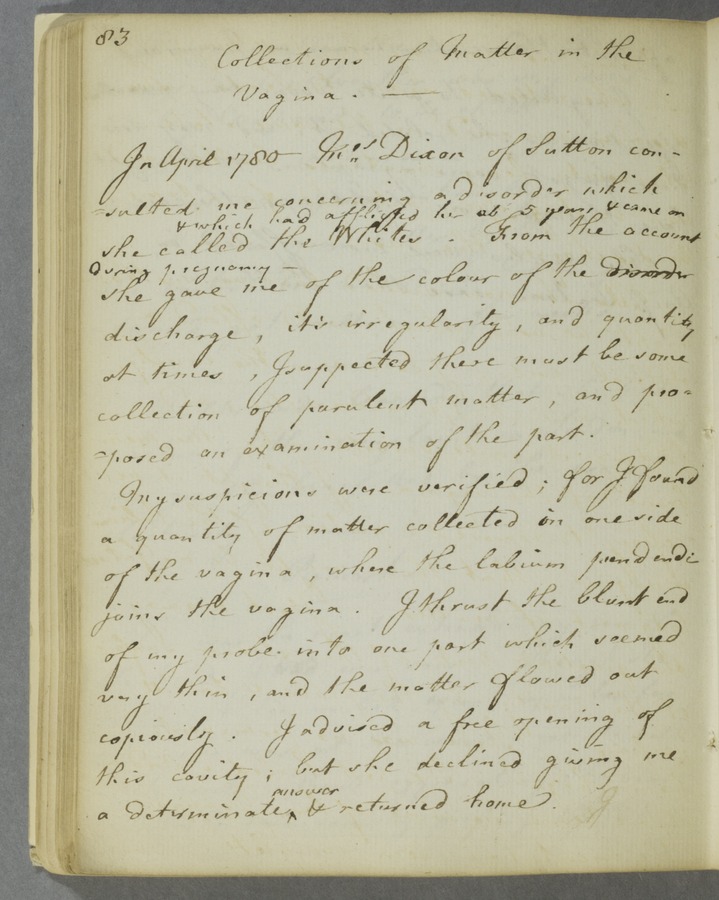 83
Collections of Matter in the
Vagina. —
In April 1780 Mrs Dixon of Sutton con-
=sulted me concerning a disorder which
& which had afflicted her ab 5 years, & came on
she called the Whites. From the account
During pregnancy —
she gave me of the colour of the disorder
discharge, it's irregularity, and quantity
at times, I suspected there must be some
collection of purulent matter, and pro=
=posed an examination of the part.
My suspicions were verified; for I found
a quantity of matter collected in one side
of the vagina, where the labium pendendi
joins the vagina. I thrust the blunt end
of my probe into one part which seemed
very thin, and the matter flowed out
copiously. I advised a free opening of
this cavity; but she declined giving me
answer
a determinate ‸ & returned home.